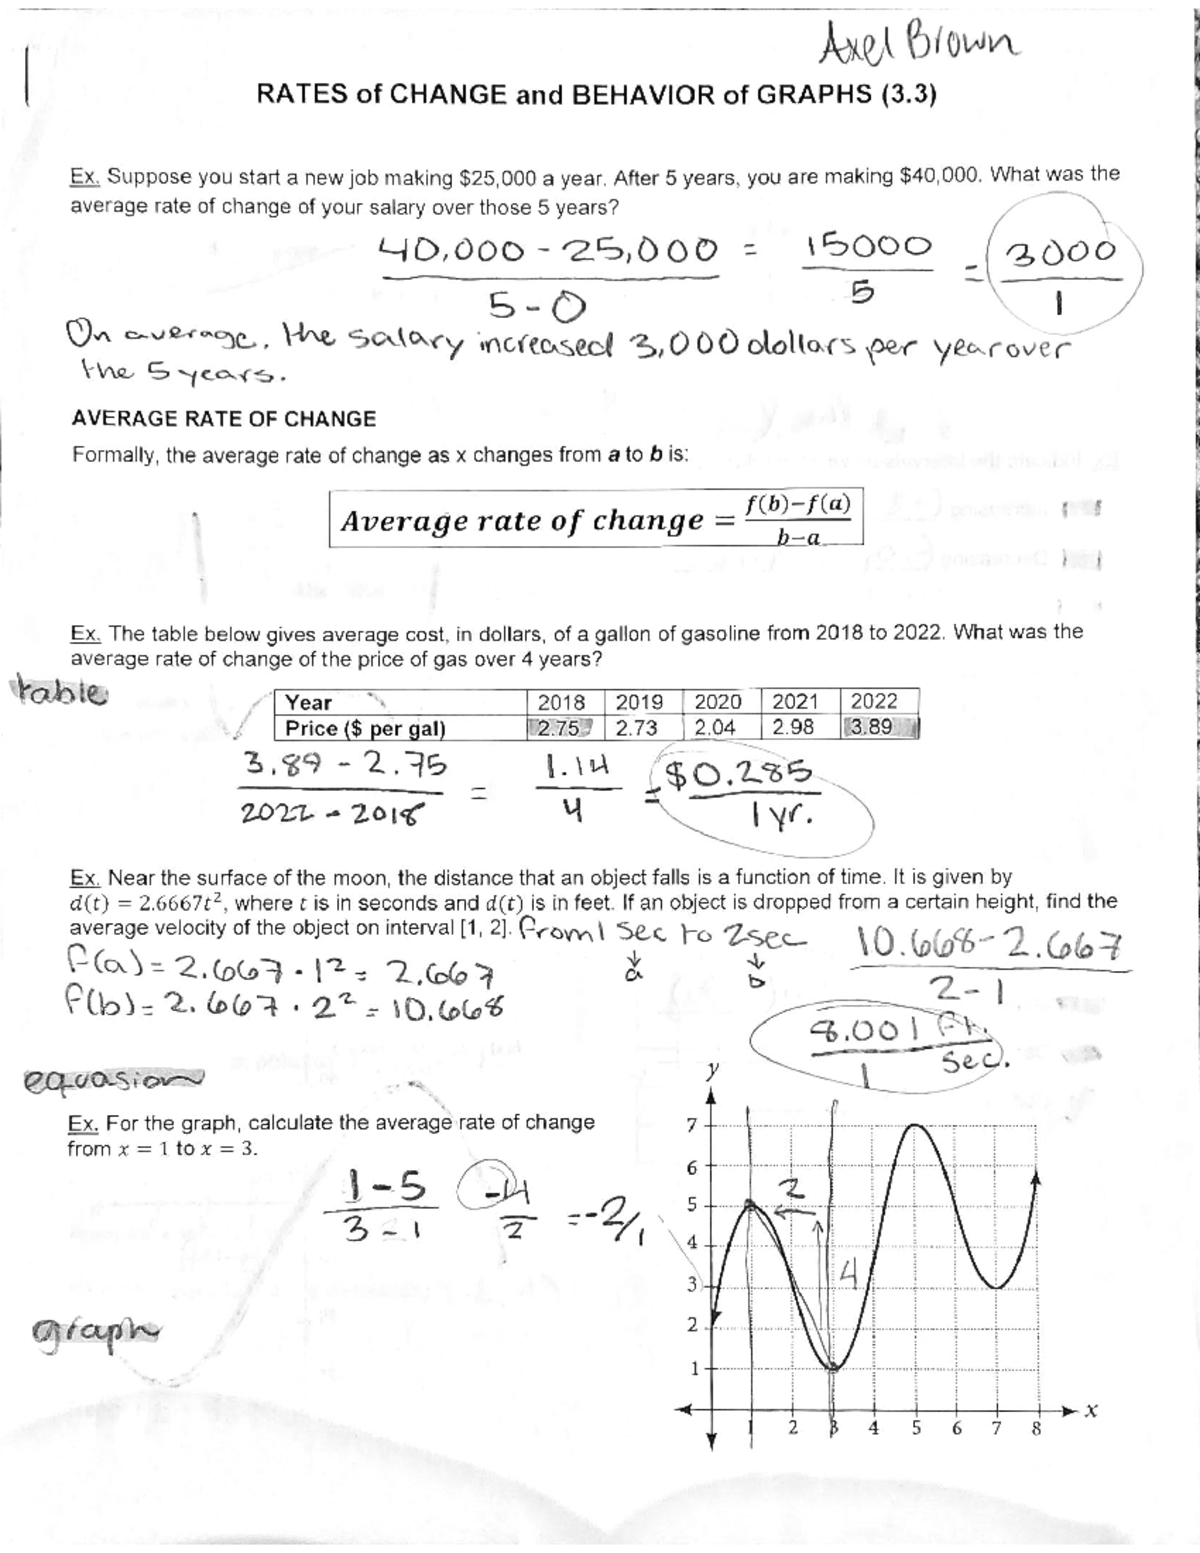 Axel Brown
RATES of CHANGE and BEHAVIOR of GRAPHS (3.3)
Ex. Suppose you start a new job making $25,000 a year. After 5 years, you are making $40,000. What was the
average rate of change of your salary over those 5 years?
40,000 - 25,000 = 15000 = 3000
5-0 5 1
On average, the salary increased 3,000 dollars per year over
the 5 years.
AVERAGE RATE OF CHANGE
Formally, the average rate of change as x changes from a to b is:
Average rate of change = f(b)−f(a)
b−a
Ex. The table below gives average cost, in dollars, of a gallon of gasoline from 2018 to 2022. What was the
average rate of change of the price of gas over 4 years?
table
Year 2018 2019 2020 2021 2022
Price ($ per gal) 2.75 2.73 2.04 2.98 3.89
3.89 - 2.75 = 1.14 = $0.285
2022 - 2018 4 1 yr.
Ex. Near the surface of the moon, the distance that an object falls is a function of time. It is given by
d(t) = 2.6667t², where t is in seconds and d(t) is in feet. If an object is dropped from a certain height, find the
average velocity of the object on interval [1, 2]. from 1 sec to 2 sec
a b
f(a) = 2.667 · 1² = 2.667
f(b) = 2.667 · 2² = 10.668
10.668 - 2.667
2 - 1
8.001 ft.
1 sec.
equasion
Ex. For the graph, calculate the average rate of change
from x = 1 to x = 3.
1-5 -4 = -2/1
3-1 2
graph
y
7
6
5
4
3
2
1
2
4
1 2 3 4 5 6 7 8
x